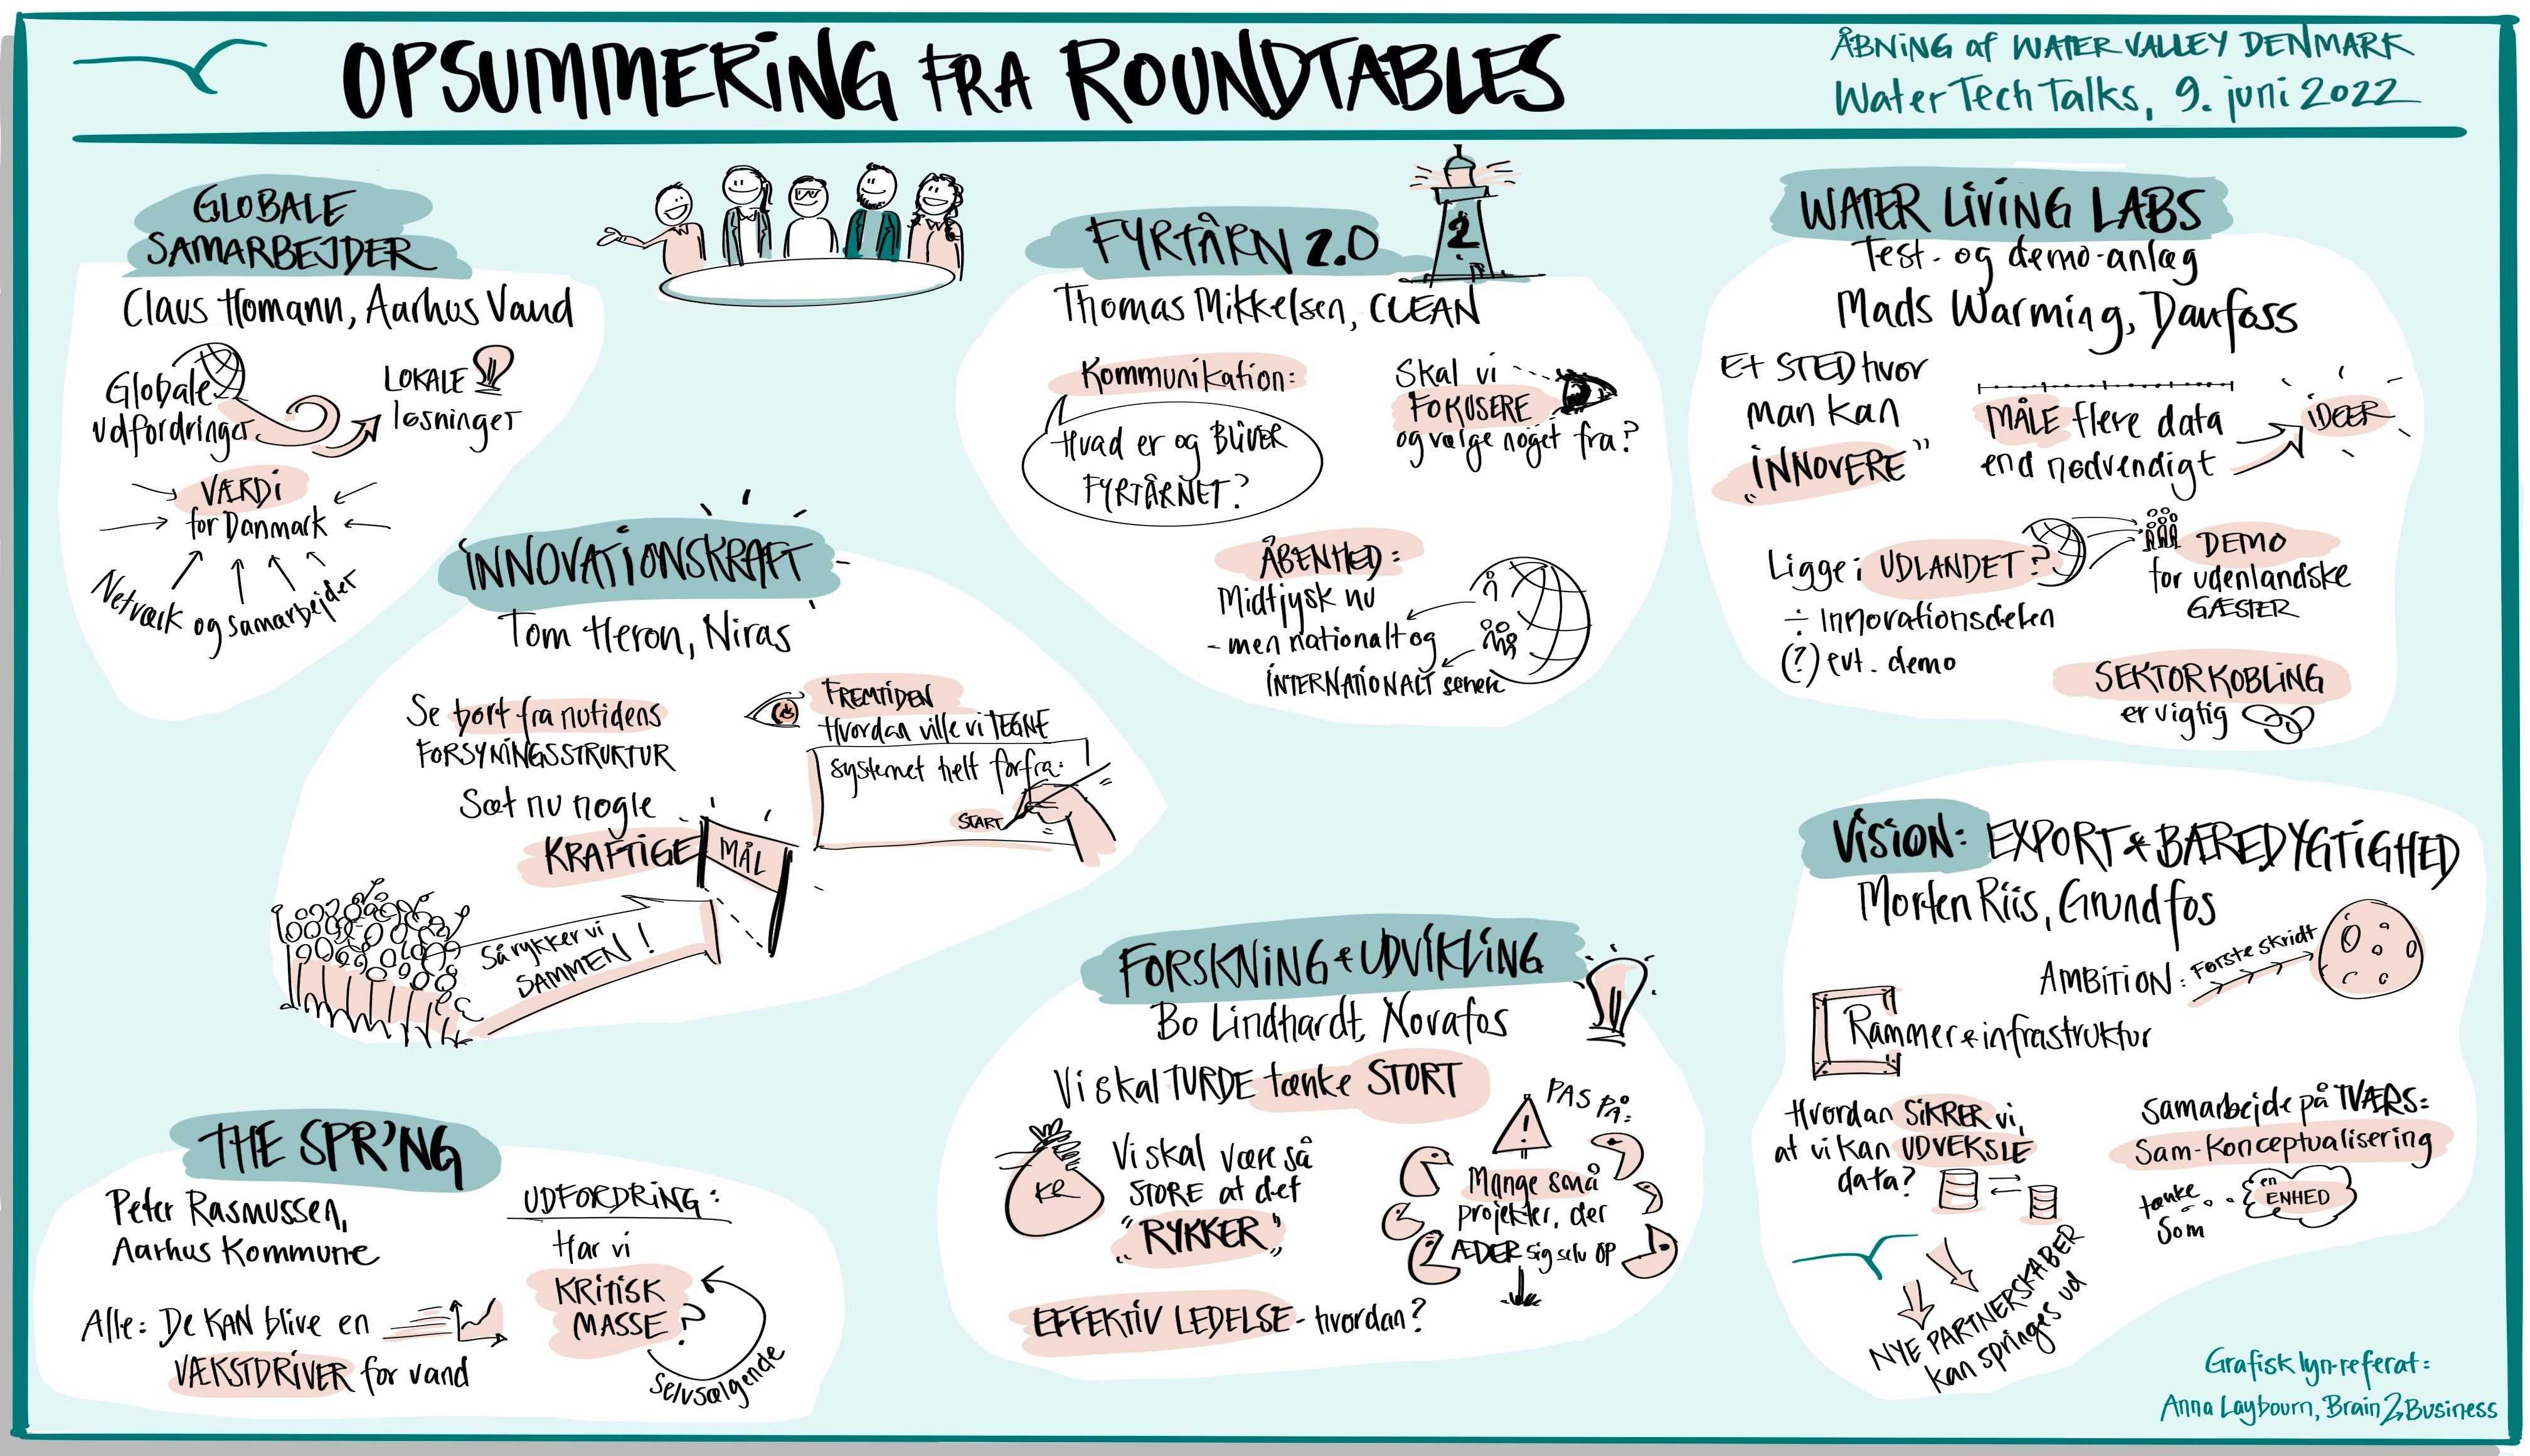 OPSUMMERING FRA ROUNDTABLES
ÅBNING af WATER VALLEY DENMARK
Water Tech Talks, 9. juni 2022
GLOBALE
SAMARBEJDER
Claus Homann, Aarhus Vand
Globale
udfordringer
LOKALE
løsninger
VÆRDI
for Danmark
Netværk og samarbejder
INNOVATIONSKRAFT
Tom Heron, Niras
Se bort fra nutidens
FORSYNINGSSTRUKTUR
Sæt nu nogle
KRAFTIGE
MÅL
Så rykker vi
SAMMEN!
FREMTIDEN
Hvordan ville vi TEGNE
systemet helt forfra:
START
THE SPR'NG
Peter Rasmussen,
Aarhus Kommune
Alle: De KAN blive en
VÆKSTDRIVER for vand
UDFORDRING:
Har vi
KRITISK
MASSE?
selvsælgende
FYRTÅRN 2.0
2
Thomas Mikkelsen, CLEAN
Kommunikation:
Hvad er og BLIVER
FYRTÅRNET?
Skal vi
FOKUSERE
og vælge noget fra?
ÅBENHED:
Midtjysk nu
- men nationalt og
INTERNATIONALT senere
FORSKNING & UDVIKLING
Bo Lindhardt, Novafos
Vi skal TURDE tænke STORT
KR
Vi skal være så
STORE at det
„RYKKER"
PAS PÅ:
!
Mange små
projekter, der
ÆDER sig selv OP
EFFEKTIV LEDELSE - hvordan?
WATER LIVING LABS
Test- og demo-anlæg
Mads Warming, Danfoss
Et STED hvor
man kan
„INNOVERE"
MÅLE flere data
end nødvendigt
IDEER
Ligge i UDLANDET?
÷ Innovationsdelen
(?) evt. demo
DEMO
for udenlandske
GÆSTER
SEKTORKOBLING
er vigtig
VISION: EXPORT & BÆREDYGTIGHED
Morten Riis, Grundfos
AMBITION: Første skridt
Rammer & infrastruktur
Hvordan SIKRER vi,
at vi kan UDVEKSLE
data?
Samarbejde på TVÆRS:
Sam-Konceptualisering
tænke
som
en
ENHED
NYE PARTNERSKABER
kan springes ud
Grafisk lyn-referat:
Anna Laybourn, Brain2Business